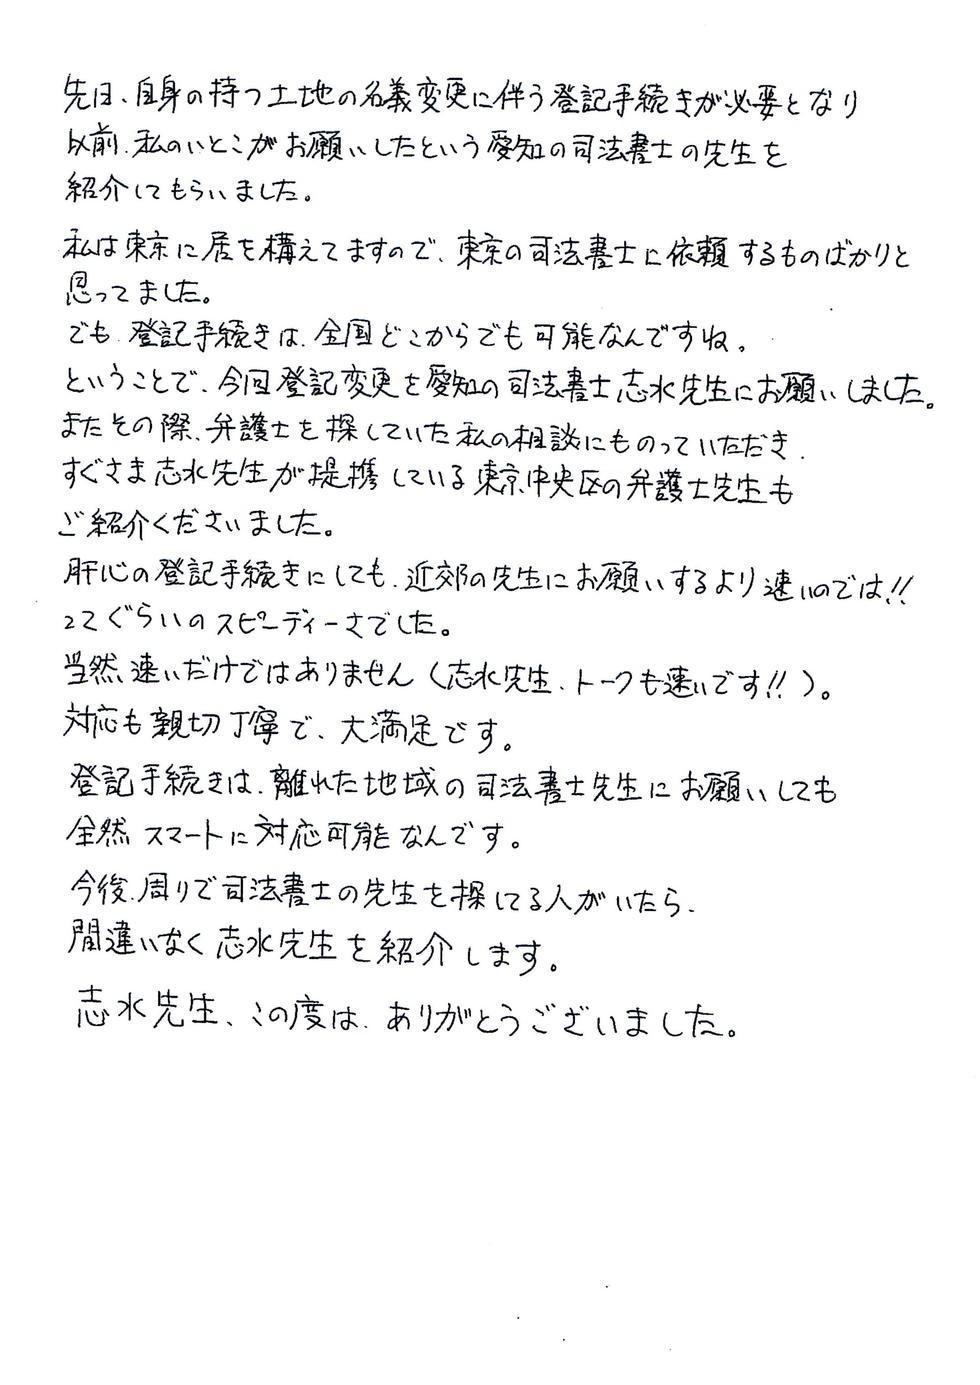 先日、自身の持つ土地の名義変更に伴う登記手続きが必要となり
以前、私のいとこがお願いしたという愛知の司法書士の先生を
紹介してもらいました。
私は東京に居を構えてますので、東京の司法書士に依頼するものばかりと
思ってました。
でも、登記手続きは、全国どこからでも可能なんですね。
ということで、今回登記変更を愛知の司法書士志水先生にお願いしました。
またその際、弁護士を探していた私の相談にものっていただき、
すぐさま志水先生が提携している東京中央区の弁護士先生も
ご紹介くださいました。
肝心の登記手続きにしても、近郊の先生にお願いするより速いのでは!!
ってぐらいのスピーディーさでした。
当然、速いだけではありません(志水先生、トークも速いです!!)。
対応も親切丁寧で、大満足です。
登記手続きは、離れた地域の司法書士先生にお願いしても
全然スマートに対応可能なんです。
今後、周りで司法書士の先生を探してる人がいたら、
間違いなく志水先生を紹介します。
志水先生、この度は、ありがとうございました。